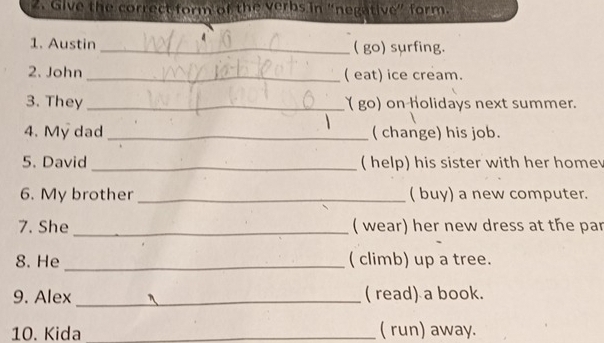 2. Give the correct form of the verbs in "negative" form.
1. Austin ( go) surfing.
2. John ( eat) ice cream.
3. They will not go ( go) on Holidays next summer.
4. My dad ( change) his job.
5. David ( help) his sister with her
6. My brother ( buy) a new computer.
7. She ( wear) her new dress at the
8. He ( climb) up a tree.
9. Alex ( read) a book.
10. Kida ( run) away.